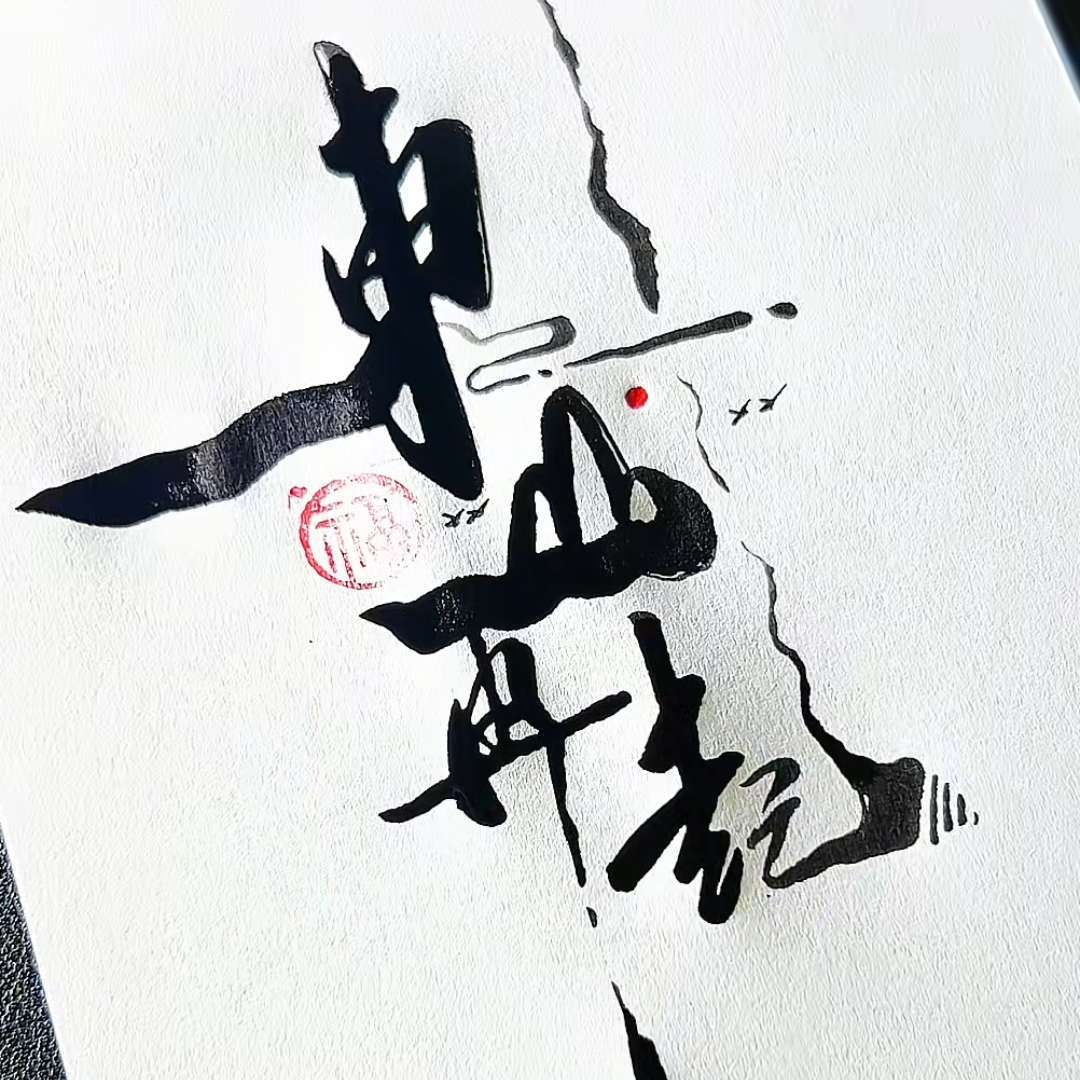 東山再起
福